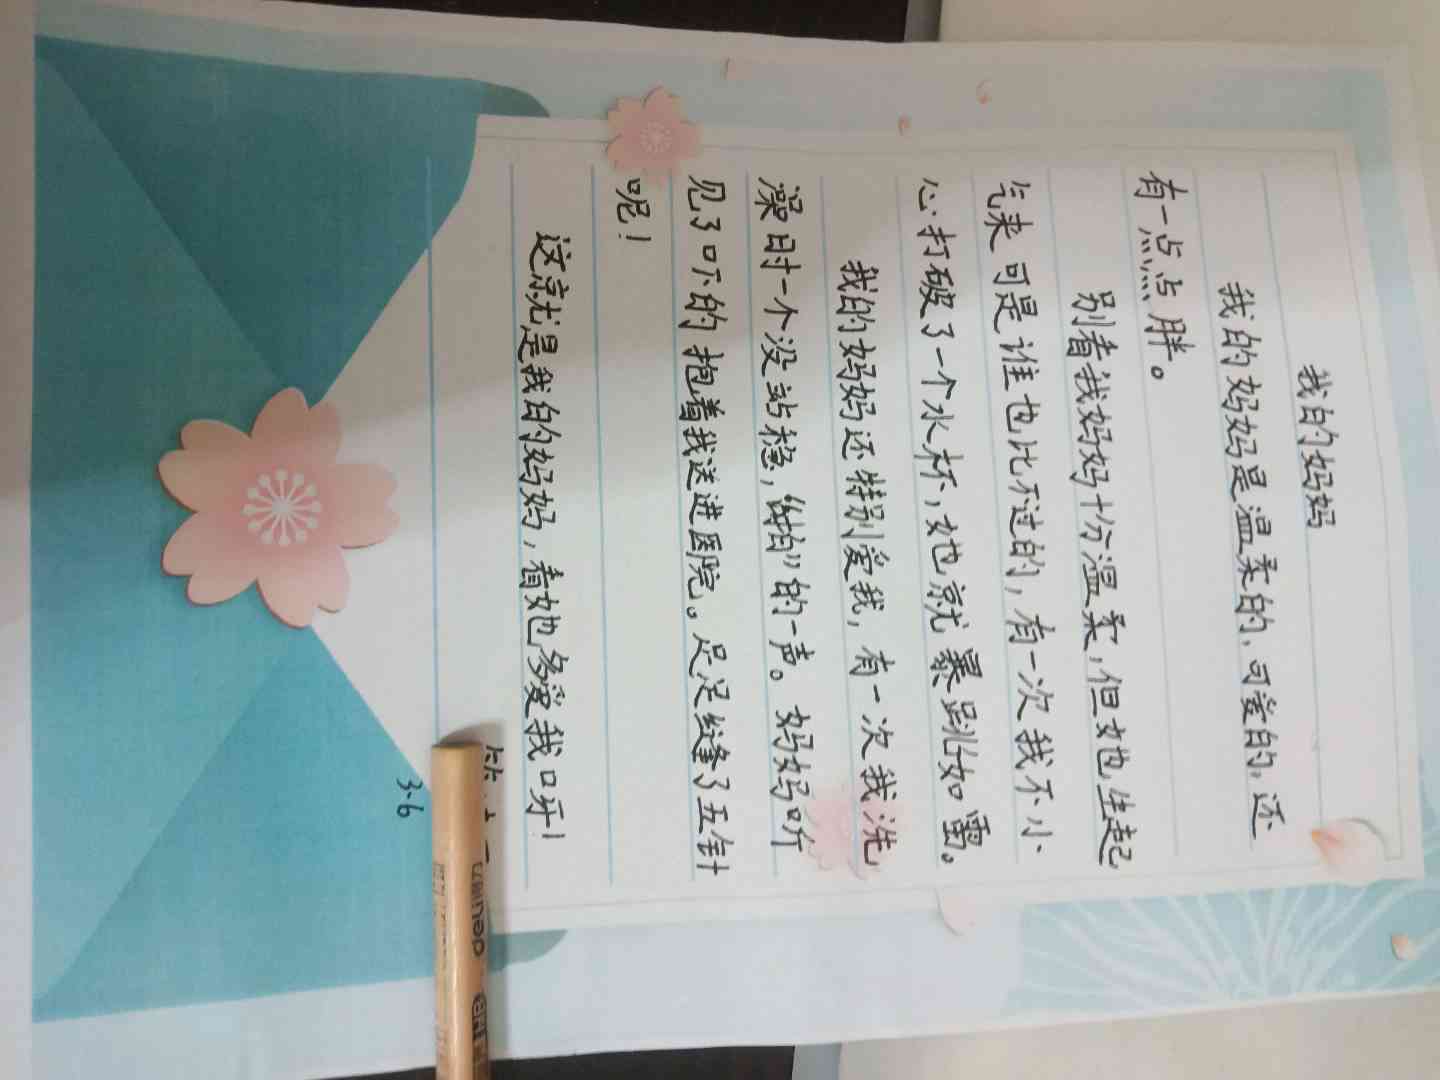 我的妈妈
我的妈妈是温柔的，可爱的，还
有一点点胖。
别看我妈妈十分温柔，但她生起
气来可是谁也比不过的，有一次我不小
心打破了一个水杯，她就暴跳如雷。
我的妈妈还特别爱我，有一次我洗
澡时一个没站稳，“啪”的一声。妈妈听
见了吓的抱着我送进医院。足足缝了五针
呢！
这就是我的妈妈，看她多爱我呀！
3·6